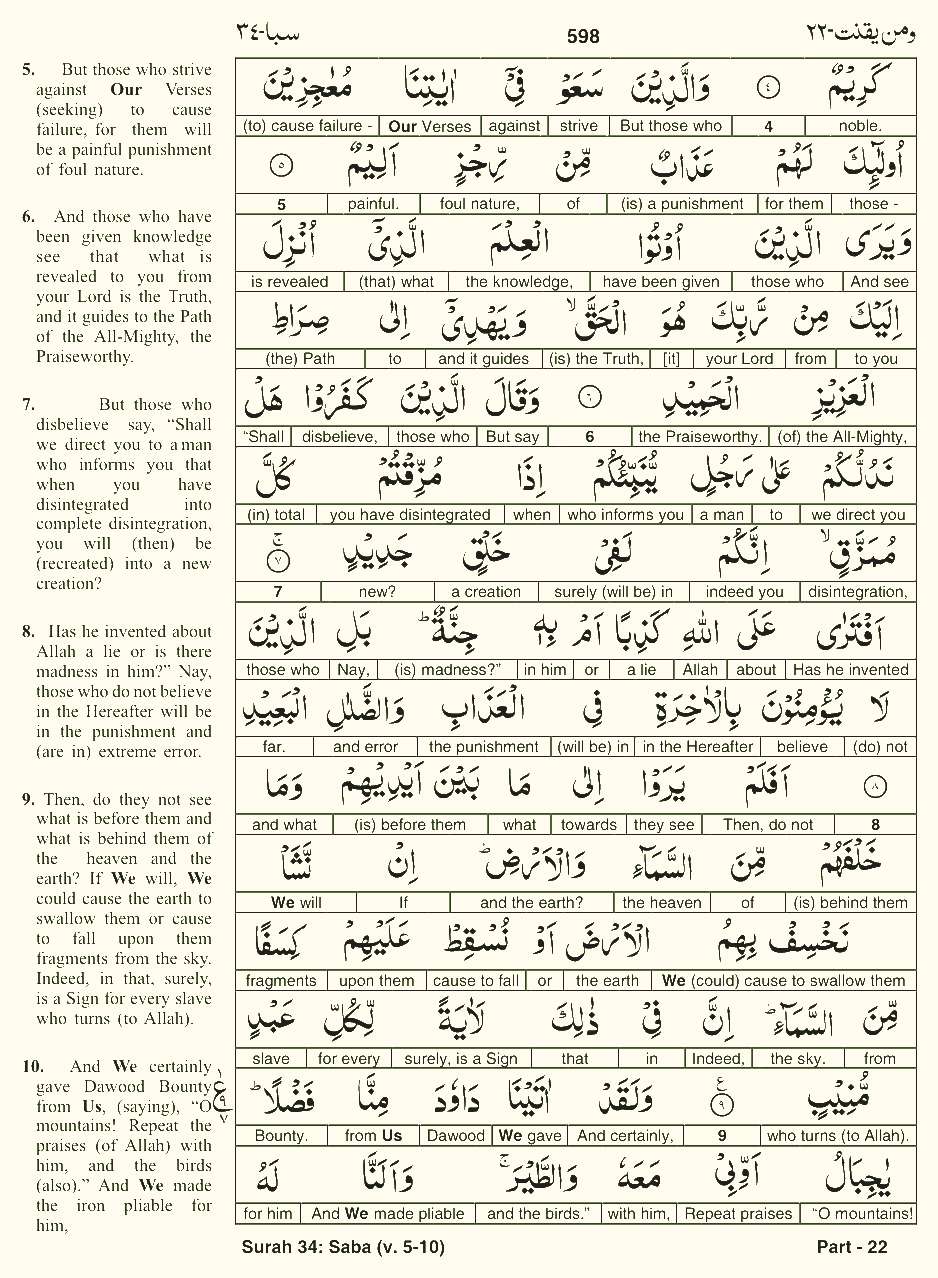 سبا-٣٤
598
ومن يقنت-٢٢
5. But those who strive
against Our Verses
(seeking) to cause
failure, for them will
be a painful punishment
of foul nature.
6. And those who have
been given knowledge
see that what is
revealed to you from
your Lord is the Truth,
and it guides to the Path
of the All-Mighty, the
Praiseworthy.
7. But those who
disbelieve say, “Shall
we direct you to a man
who informs you that
when you have
disintegrated into
complete disintegration,
you will (then) be
(recreated) into a new
creation?
8. Has he invented about
Allah a lie or is there
madness in him?” Nay,
those who do not believe
in the Hereafter will be
in the punishment and
(are in) extreme error.
9. Then, do they not see
what is before them and
what is behind them of
the heaven and the
earth? If We will, We
could cause the earth to
swallow them or cause
to fall upon them
fragments from the sky.
Indeed, in that, surely,
is a Sign for every slave
who turns (to Allah).
10. And We certainly
gave Dawood Bounty
from Us, (saying), “O
mountains! Repeat the
praises (of Allah) with
him, and the birds
(also).” And We made
the iron pliable for
him,
كَرِيْمٌ ٤ وَالَّذِيْنَ سَعَوْ فِيْٓ اٰيٰتِنَا مُعٰجِزِيْنَ
(to) cause failure - Our Verses against strive But those who 4 noble.
اُولٰٓئِكَ لَهُمْ عَذَابٌ مِّنْ رِّجْزٍ اَلِيْمٌ ٥
5 painful. foul nature, of (is) a punishment for them those -
وَيَرَى الَّذِيْنَ اُوْتُوا الْعِلْمَ الَّذِيْٓ اُنْزِلَ
is revealed (that) what the knowledge, have been given those who And see
اِلَيْكَ مِنْ رَّبِّكَ هُوَ الْحَقَّ ۙ وَيَهْدِيْٓ اِلٰى صِرَاطِ
(the) Path to and it guides (is) the Truth, [it] your Lord from to you
الْعَزِيْزِ الْحَمِيْدِ ٦ وَقَالَ الَّذِيْنَ كَفَرُوْا هَلْ
“Shall disbelieve, those who But say 6 the Praiseworthy. (of) the All-Mighty,
نَدُلُّكُمْ عَلٰى رَجُلٍ يُّنَبِّئُكُمْ اِذَا مُزِّقْتُمْ كُلَّ
(in) total you have disintegrated when who informs you a man to we direct you
مُمَزَّقٍ ۙ اِنَّكُمْ لَفِيْ خَلْقٍ جَدِيْدٍ ۚ ٧
7 new? a creation surely (will be) in indeed you disintegration,
اَفْتَرٰى عَلَى اللهِ كَذِبًا اَمْ بِهٖ جِنَّةٌ ؕ بَلِ الَّذِيْنَ
those who Nay, (is) madness?” in him or a lie Allah about Has he invented
لَا يُؤْمِنُوْنَ بِالْاٰخِرَةِ فِي الْعَذَابِ وَالضَّلٰلِ الْبَعِيْدِ
far. and error the punishment (will be) in in the Hereafter believe (do) not
٨ اَفَلَمْ يَرَوْا اِلٰى مَا بَيْنَ اَيْدِيْهِمْ وَمَا
and what (is) before them what towards they see Then, do not 8
خَلْفَهُمْ مِّنَ السَّمَآءِ وَالْاَرْضِ ؕ اِنْ نَّشَاْ
We will If and the earth? the heaven of (is) behind them
نَخْسِفْ بِهِمُ الْاَرْضَ اَوْ نُسْقِطْ عَلَيْهِمْ كِسَفًا
fragments upon them cause to fall or the earth We (could) cause to swallow them
مِّنَ السَّمَآءِ ؕ اِنَّ فِيْ ذٰلِكَ لَاٰيَةً لِّكُلِّ عَبْدٍ
slave for every surely, is a Sign that in Indeed, the sky. from
مُّنِيْبٍ ٩ ع وَلَقَدْ اٰتَيْنَا دَاوٗدَ مِنَّا فَضْلًا ؕ ١ ع ٩ ٧
Bounty. from Us Dawood We gave And certainly, 9 who turns (to Allah).
يٰجِبَالُ اَوِّبِيْ مَعَهٗ وَالطَّيْرَ ۚ وَاَلَنَّا لَهُ
for him And We made pliable and the birds.” with him, Repeat praises “O mountains!
Surah 34: Saba (v. 5-10)
Part - 22